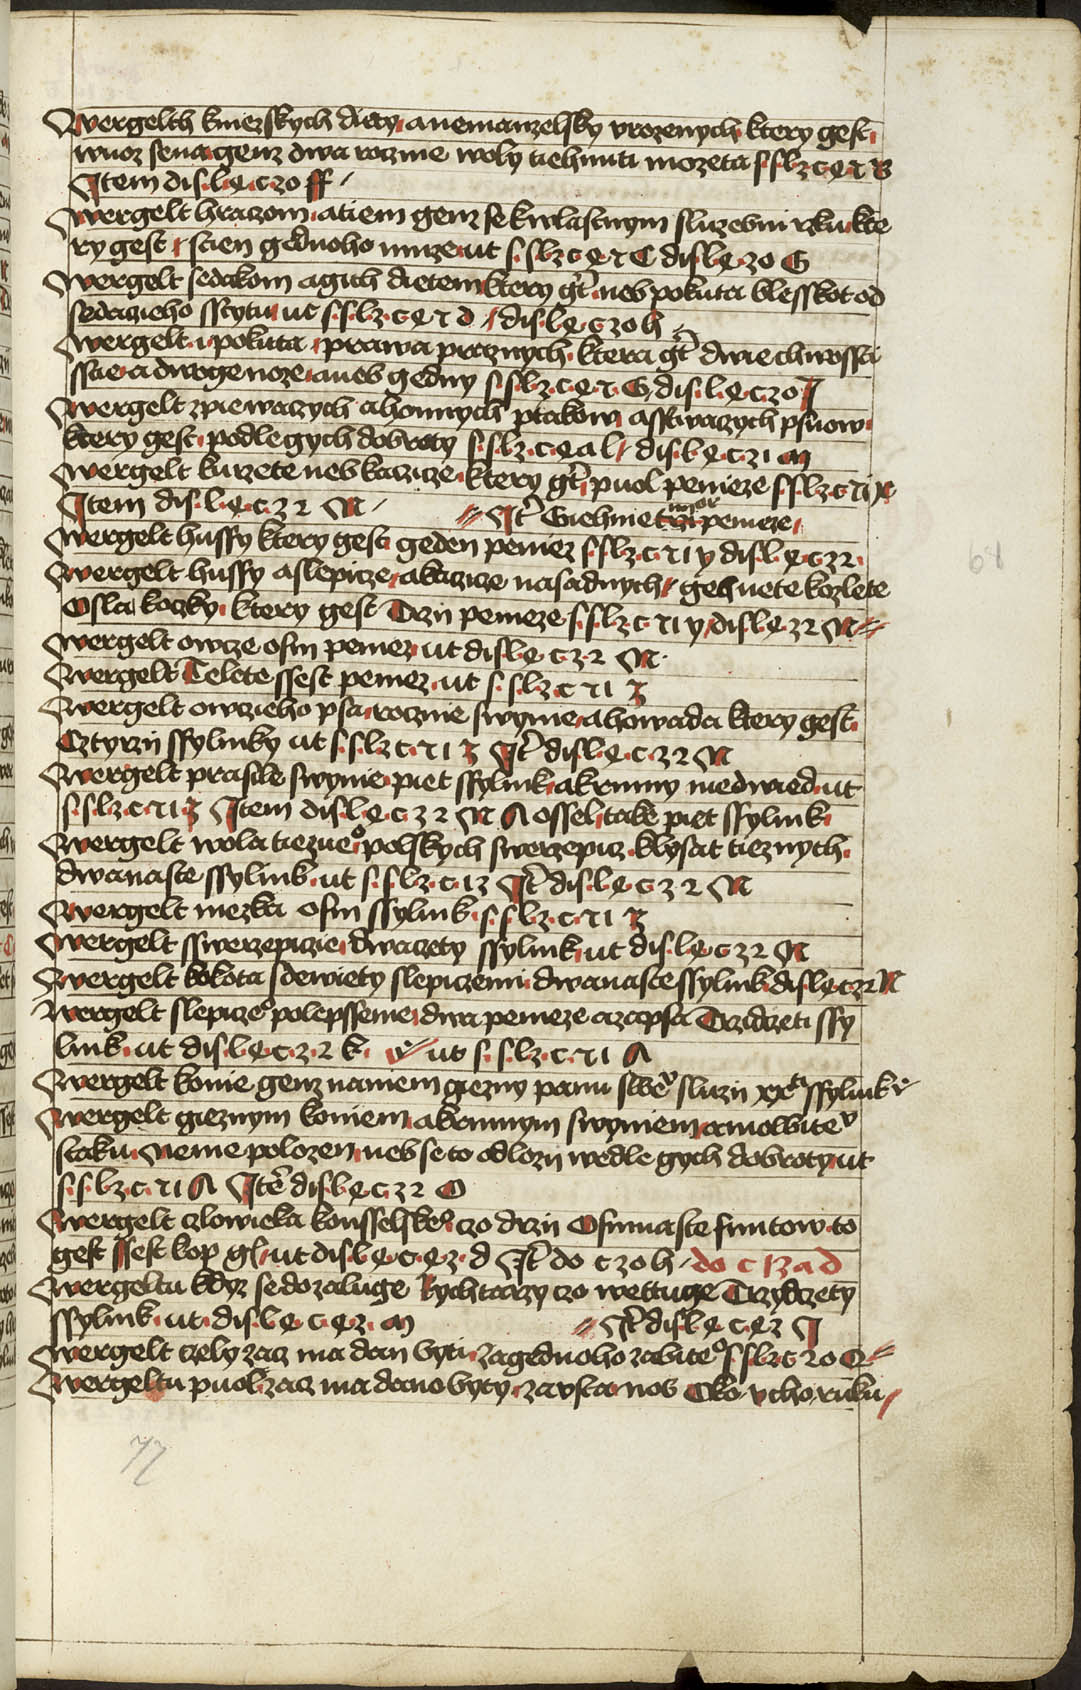 Wergelth kniezskych dieti, a nemanzelsky vrozenych, ktery gest,
wuoz sena, genz dwa rocznie woly tiehnuti mozeta s. s. lz. c. e. r B
Item dis. l. e. c. zo ff
Wergelt hraczom, a tiem genz se k wlastnym sluzebni
ry gest, stien gednoho muze, ut s. s. lz c e r C dis l e zo G
Wergelt sedlakom a gich dietem, ktery gt, neb pokuta blesskot od
sedlacieho sscytu, ut s. s. lz. c. e. r d, dis. l. e. c zo h
Wergelt, i pokuta, prawa praznych, ktera gt dwie chwosstі
sstie, a dwoge noze, aneb gedny s. s. lz. c. e. r. G, dis. l. e. c. zo I
Wergelt zpiewaczych a honnych ptakow, a sstwaczych psuow,
ktery gest, podle gych dobroty s. s. lz. c. e. a l, dis. l. e. c. z1 m
Wergelt kurzete neb kaczicze, ktery gt, puol penieze s. s. lz. c. r i x
Item dis. l. e. c. z r M. It Giehniet penieze,
Wergelt hussy ktery gest geden peniez s. s. lz. c. r i y dis l. e. c. z 2.
Wergelt hussy a slepicze, a kaczicze nasadnych, gehniete kozlete
Osla koczky, ktery gest Trzii penieze s. s. lz c r i y, dis l. e z 2 M
Wergelt owcze osm peniez, ut dis l. e c. z. 2 M.
Wergelt Telete ssest peniez, ut s. s. lz. c r i z
Wergelt owczieho psa, rocznie swynie, a howada ktery gest,
Cztyrzii ssylinky ut s. s. lz c. r i z It dis l. e. c. z 2 M
Wergelt prasile swynie, piet ssylink, a krmny nedwied, ut
s. s. lz c. r i z Item dis. l. e. c z 2 M A ossel, take piet ssylink,
Wergelt wola tiezneo, polskych swerzepicz, klysat tieznych,
dwanaste ssylink, ut s. s. lz. c. i z It dis. l. e. c. z 2 M
Wergelt mezka osm ssylink, s. s. lz. c. r i z
Wergelt sswerzepiczie, dwacety ssylink, ut dis. l. e c z 2 M
Wergelt kokota s dewiety slepiczemi, dwanaste ssylink dis l e c z 2 M
Wergelt slepicze polepssenie, dwa penieze a za psa Trzidzeti ssy
link, ut dis. l. e. c. z. 2 k. ut s. s. lz. c. r i A
Wergelt konie, genz naniem gezny panu swe sluzii xxti ssylink
Wergelt gieznym koniem, a krmnym swyniem,
stoku, nenie polozen, neb se to odlozii wedle gych dobroty, ut
s. s. lz. c. r i A Ite dis l. e c. z 2 O
Wergelt czlowieka konsselske, czo drzii Osmnaste funtow, to
gest ssest kop gl, ut dis. l. e. c. e z. d It do c zo h, do c 1z a d
Wergeltu kdyz se dozaluge Rychtarzy czo wettuge Trzydzety
ssylink, ut. dis. l. e. c. e z. m It dis l e c. e z I
Wergelt czely zas ma dan byti, za gednoho zabiteo s. s. lz c 20 Q
Wergeltu puol, zas ma dano byty, za vsta, nos Oko, vcho, ruku,
68
77